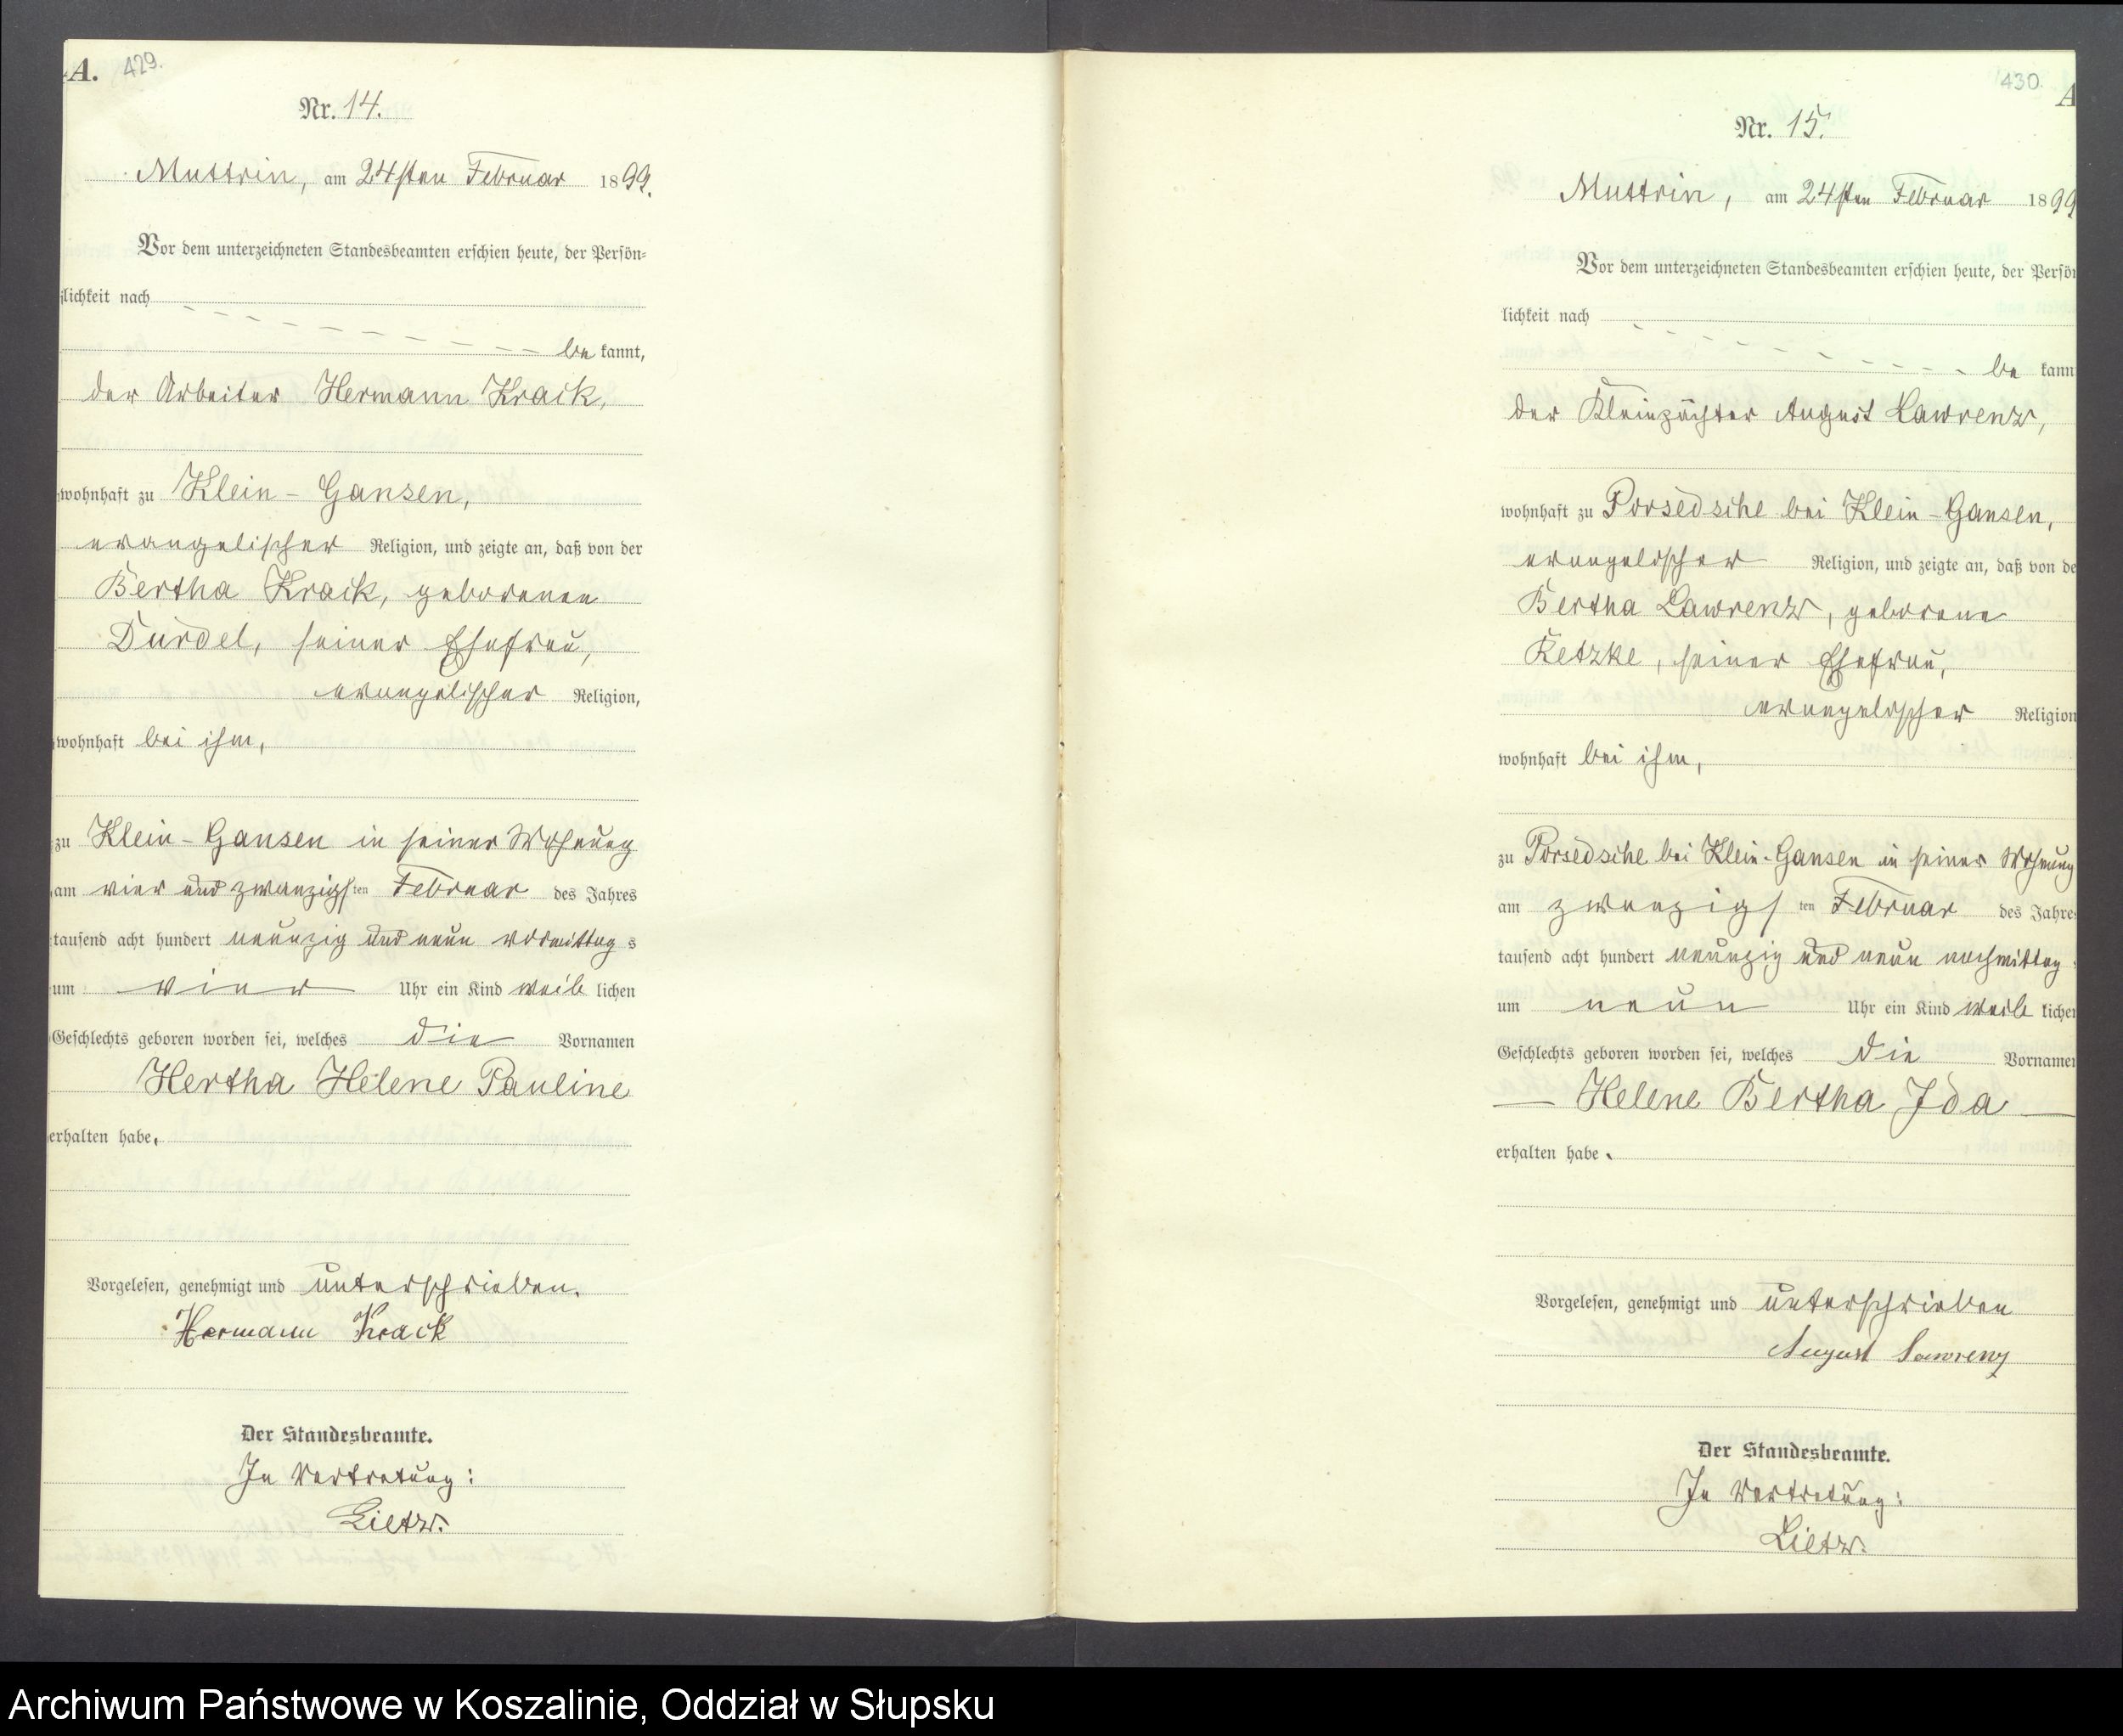 A. 429.
Nr. 14.
Muttrin, am 24sten Februar 1899.
Vor dem unterzeichneten Standesbeamten erschien heute, der Persön=
lichkeit nach
be kannt,
der Arbeiter Hermann Krack,
wohnhaft zu Klein-Gansen,
evangelischer Religion, und zeigte an, daß von der
Bertha Krack, geborenen
Dürdel, seiner Ehefrau,
evangelischer Religion,
wohnhaft bei ihm,
zu Klein-Gansen in seiner Wohnung
am vier und zwanzigsten Februar des Jahres
tausend acht hundert neunzig und neun vormittag s
um vier Uhr ein Kind weib lichen
Geschlechts geboren worden sei, welches die Vornamen
Hertha Helene Pauline
erhalten habe.
Vorgelesen, genehmigt und unterschrieben.
Hermann Krack
Der Standesbeamte.
In Vertretung:
Lietz.
430. A
Nr. 15.
Muttrin, am 24sten Februar 1899
Vor dem unterzeichneten Standesbeamten erschien heute, der Persön
lichkeit nach
be kann
der Kleinpächter August Lawrenz,
wohnhaft zu Porsedsche bei Klein-Gansen,
evangelischer Religion, und zeigte an, daß von de
Bertha Lawrenz, geborene
Ketzke, seiner Ehefrau,
evangelischer Religion
wohnhaft bei ihm,
zu Porsedsche bei Klein-Gansen in seiner Wohnung
am zwanzigs ten Februar des Jahre
tausend acht hundert neunzig und neun nachmittag
um neun Uhr ein Kind weib licher
Geschlechts geboren worden sei, welches die Vorname
Helene Bertha Ida
erhalten habe.
Vorgelesen, genehmigt und unterschrieben
August Lawrenz
Der Standesbeamte.
In Vertretung:
Lietz.
Archiwum Państwowe w Koszalinie, Oddział w Słupsku